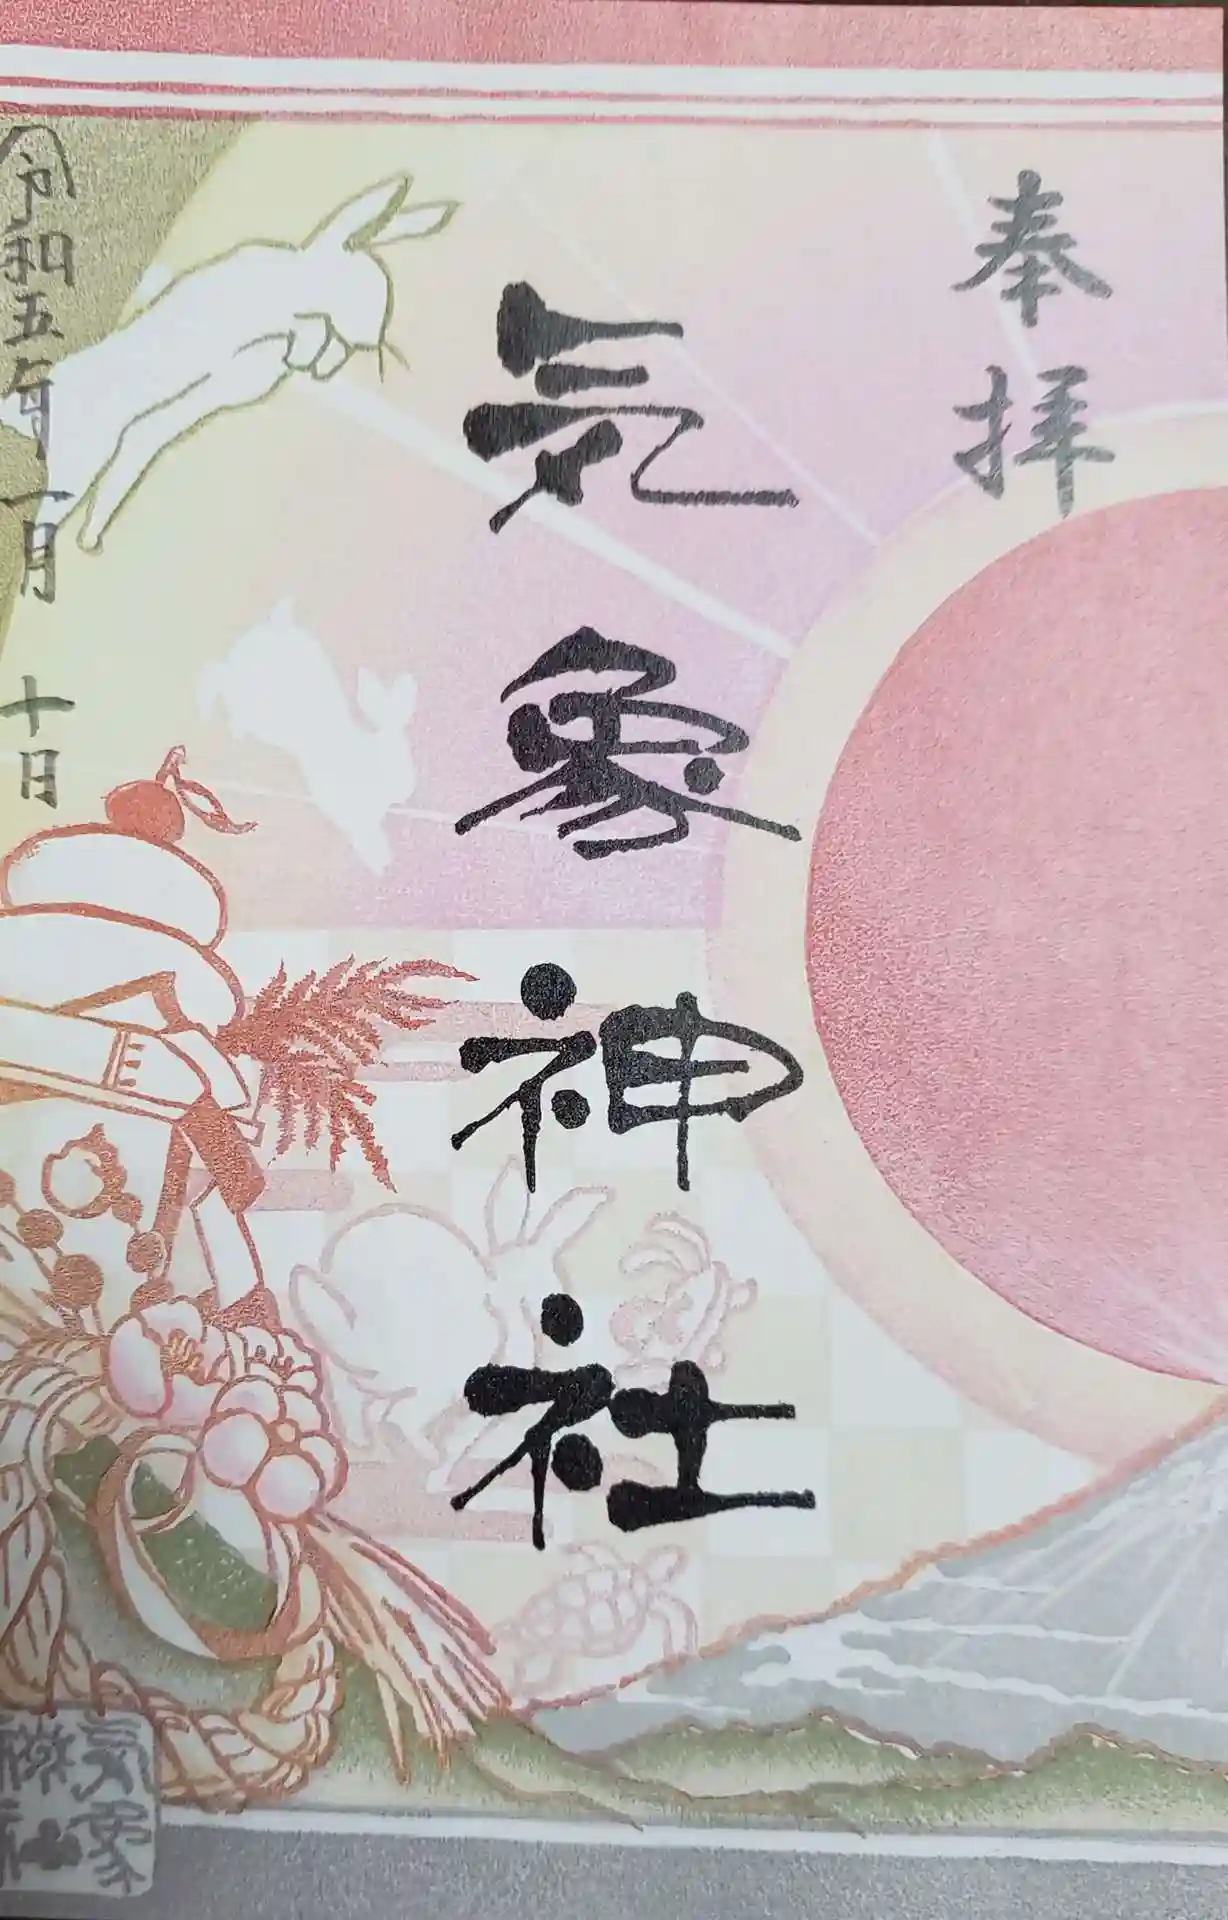 奉拝
気象神社
令和五年一月十日
気象
神社